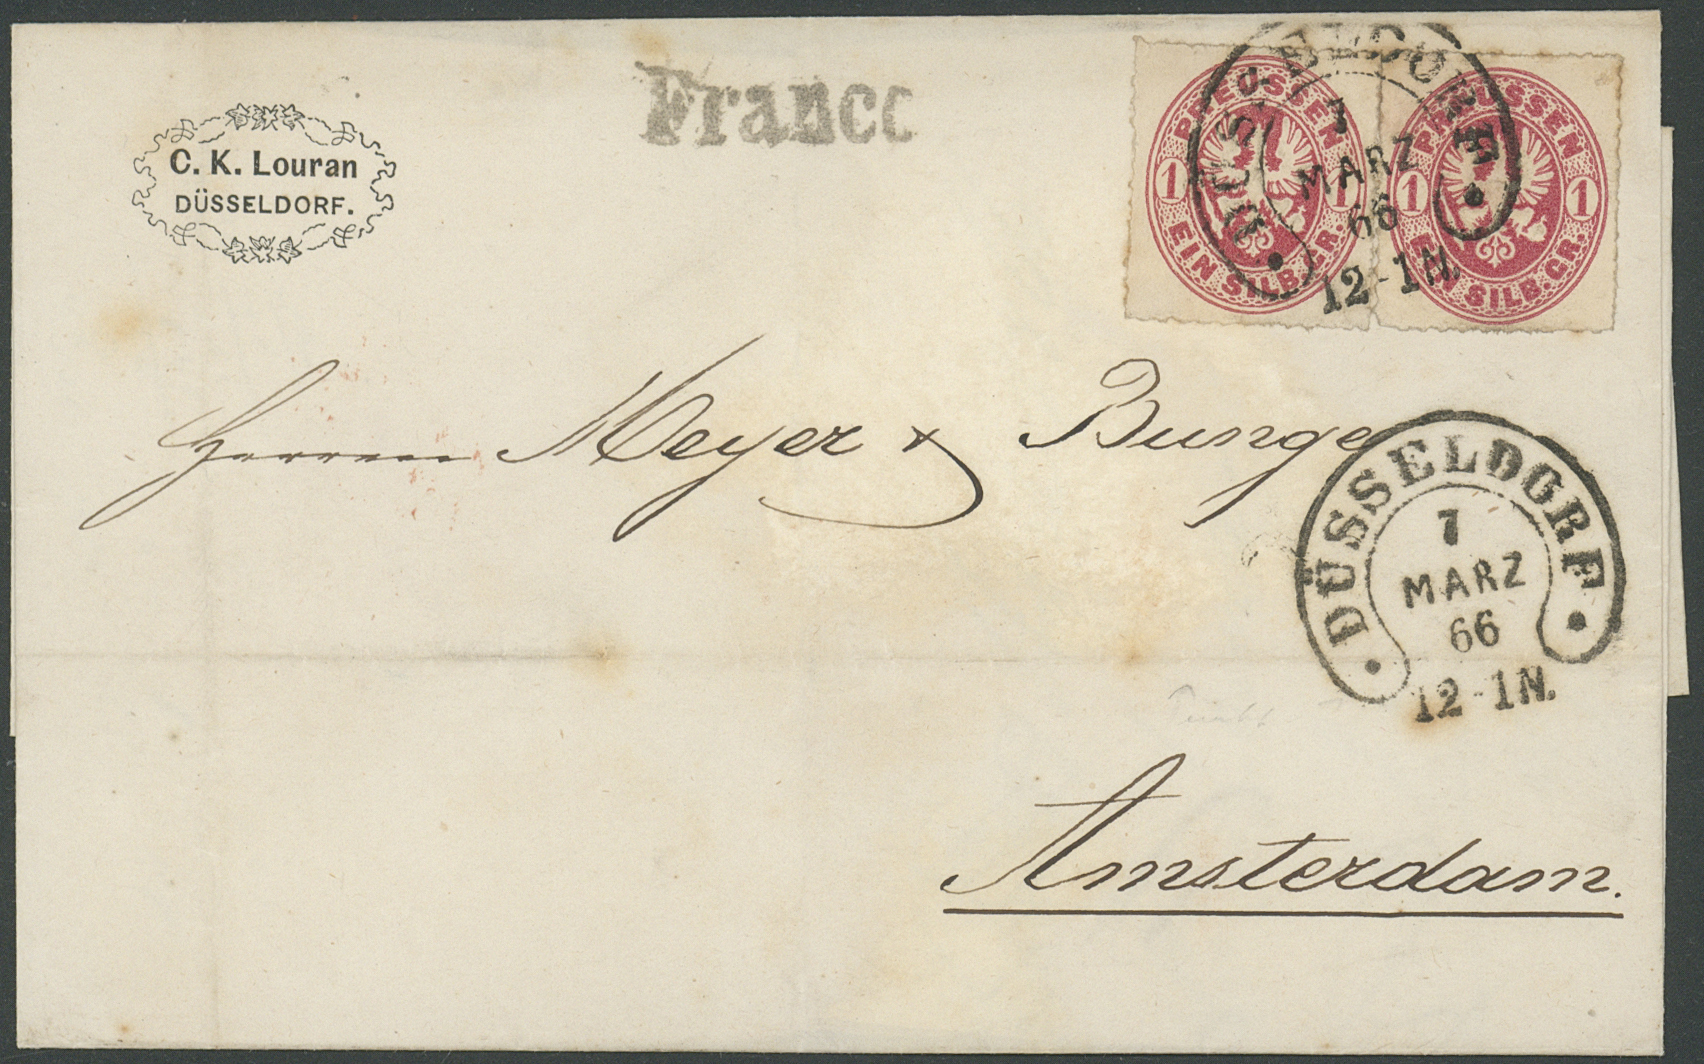 C. K. Louran
DÜSSELDORF.
Franco
PREUSSEN
1 1
EIN SILB. GR.
PREUSSEN
1 1
EIN SILB. GR.
DÜSSELDORF
7
MARZ
66
12-1N.
Herren Meyer & Bunge
DÜSSELDORF
7
MARZ
66
12-1N.
Amsterdam.